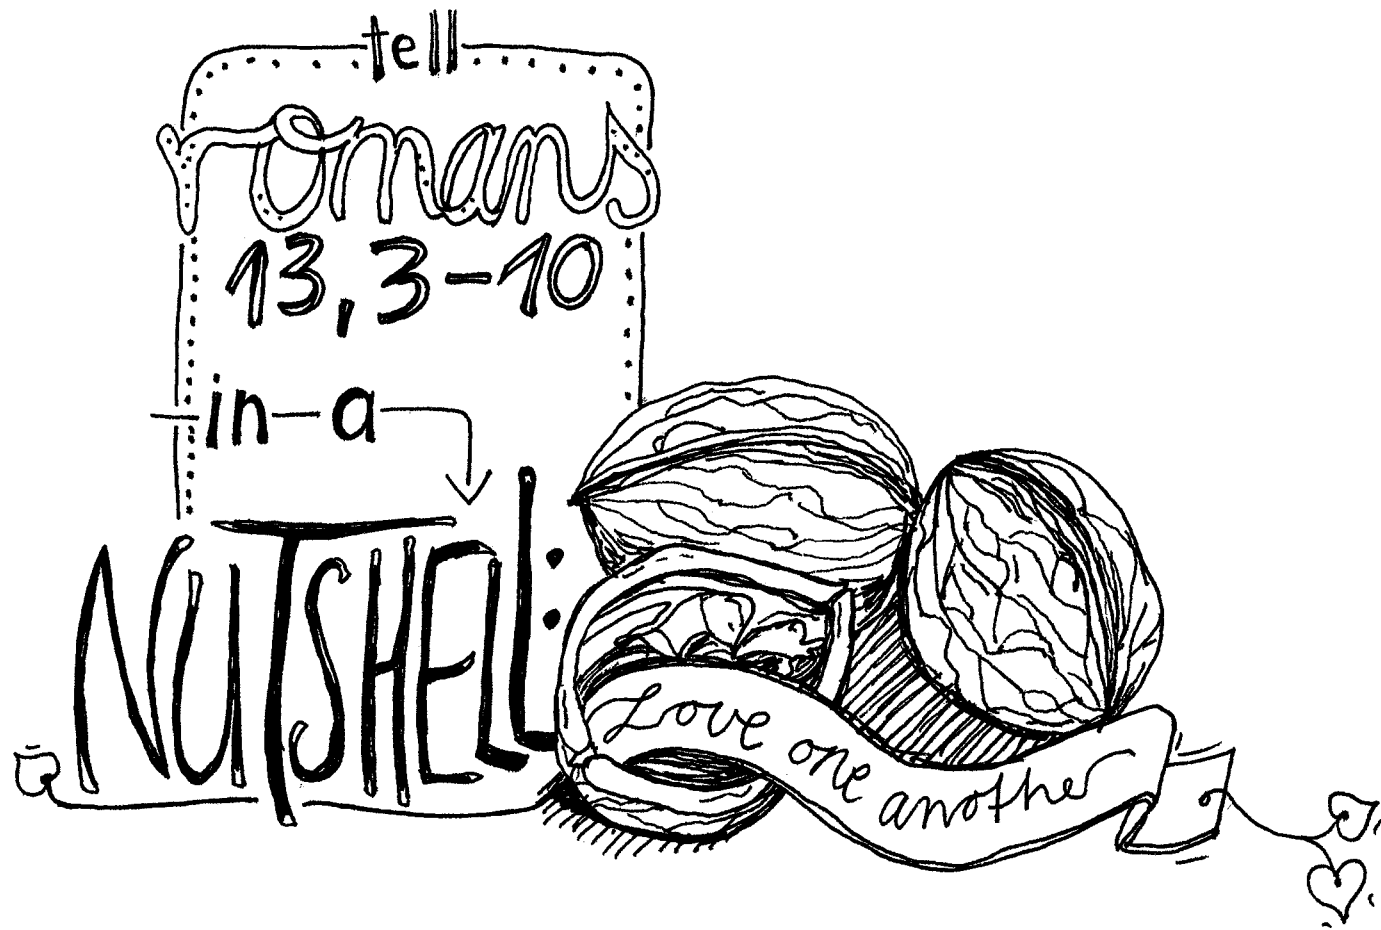 tell
romans
13, 3-10
in a
NUTSHELL:
Love one another